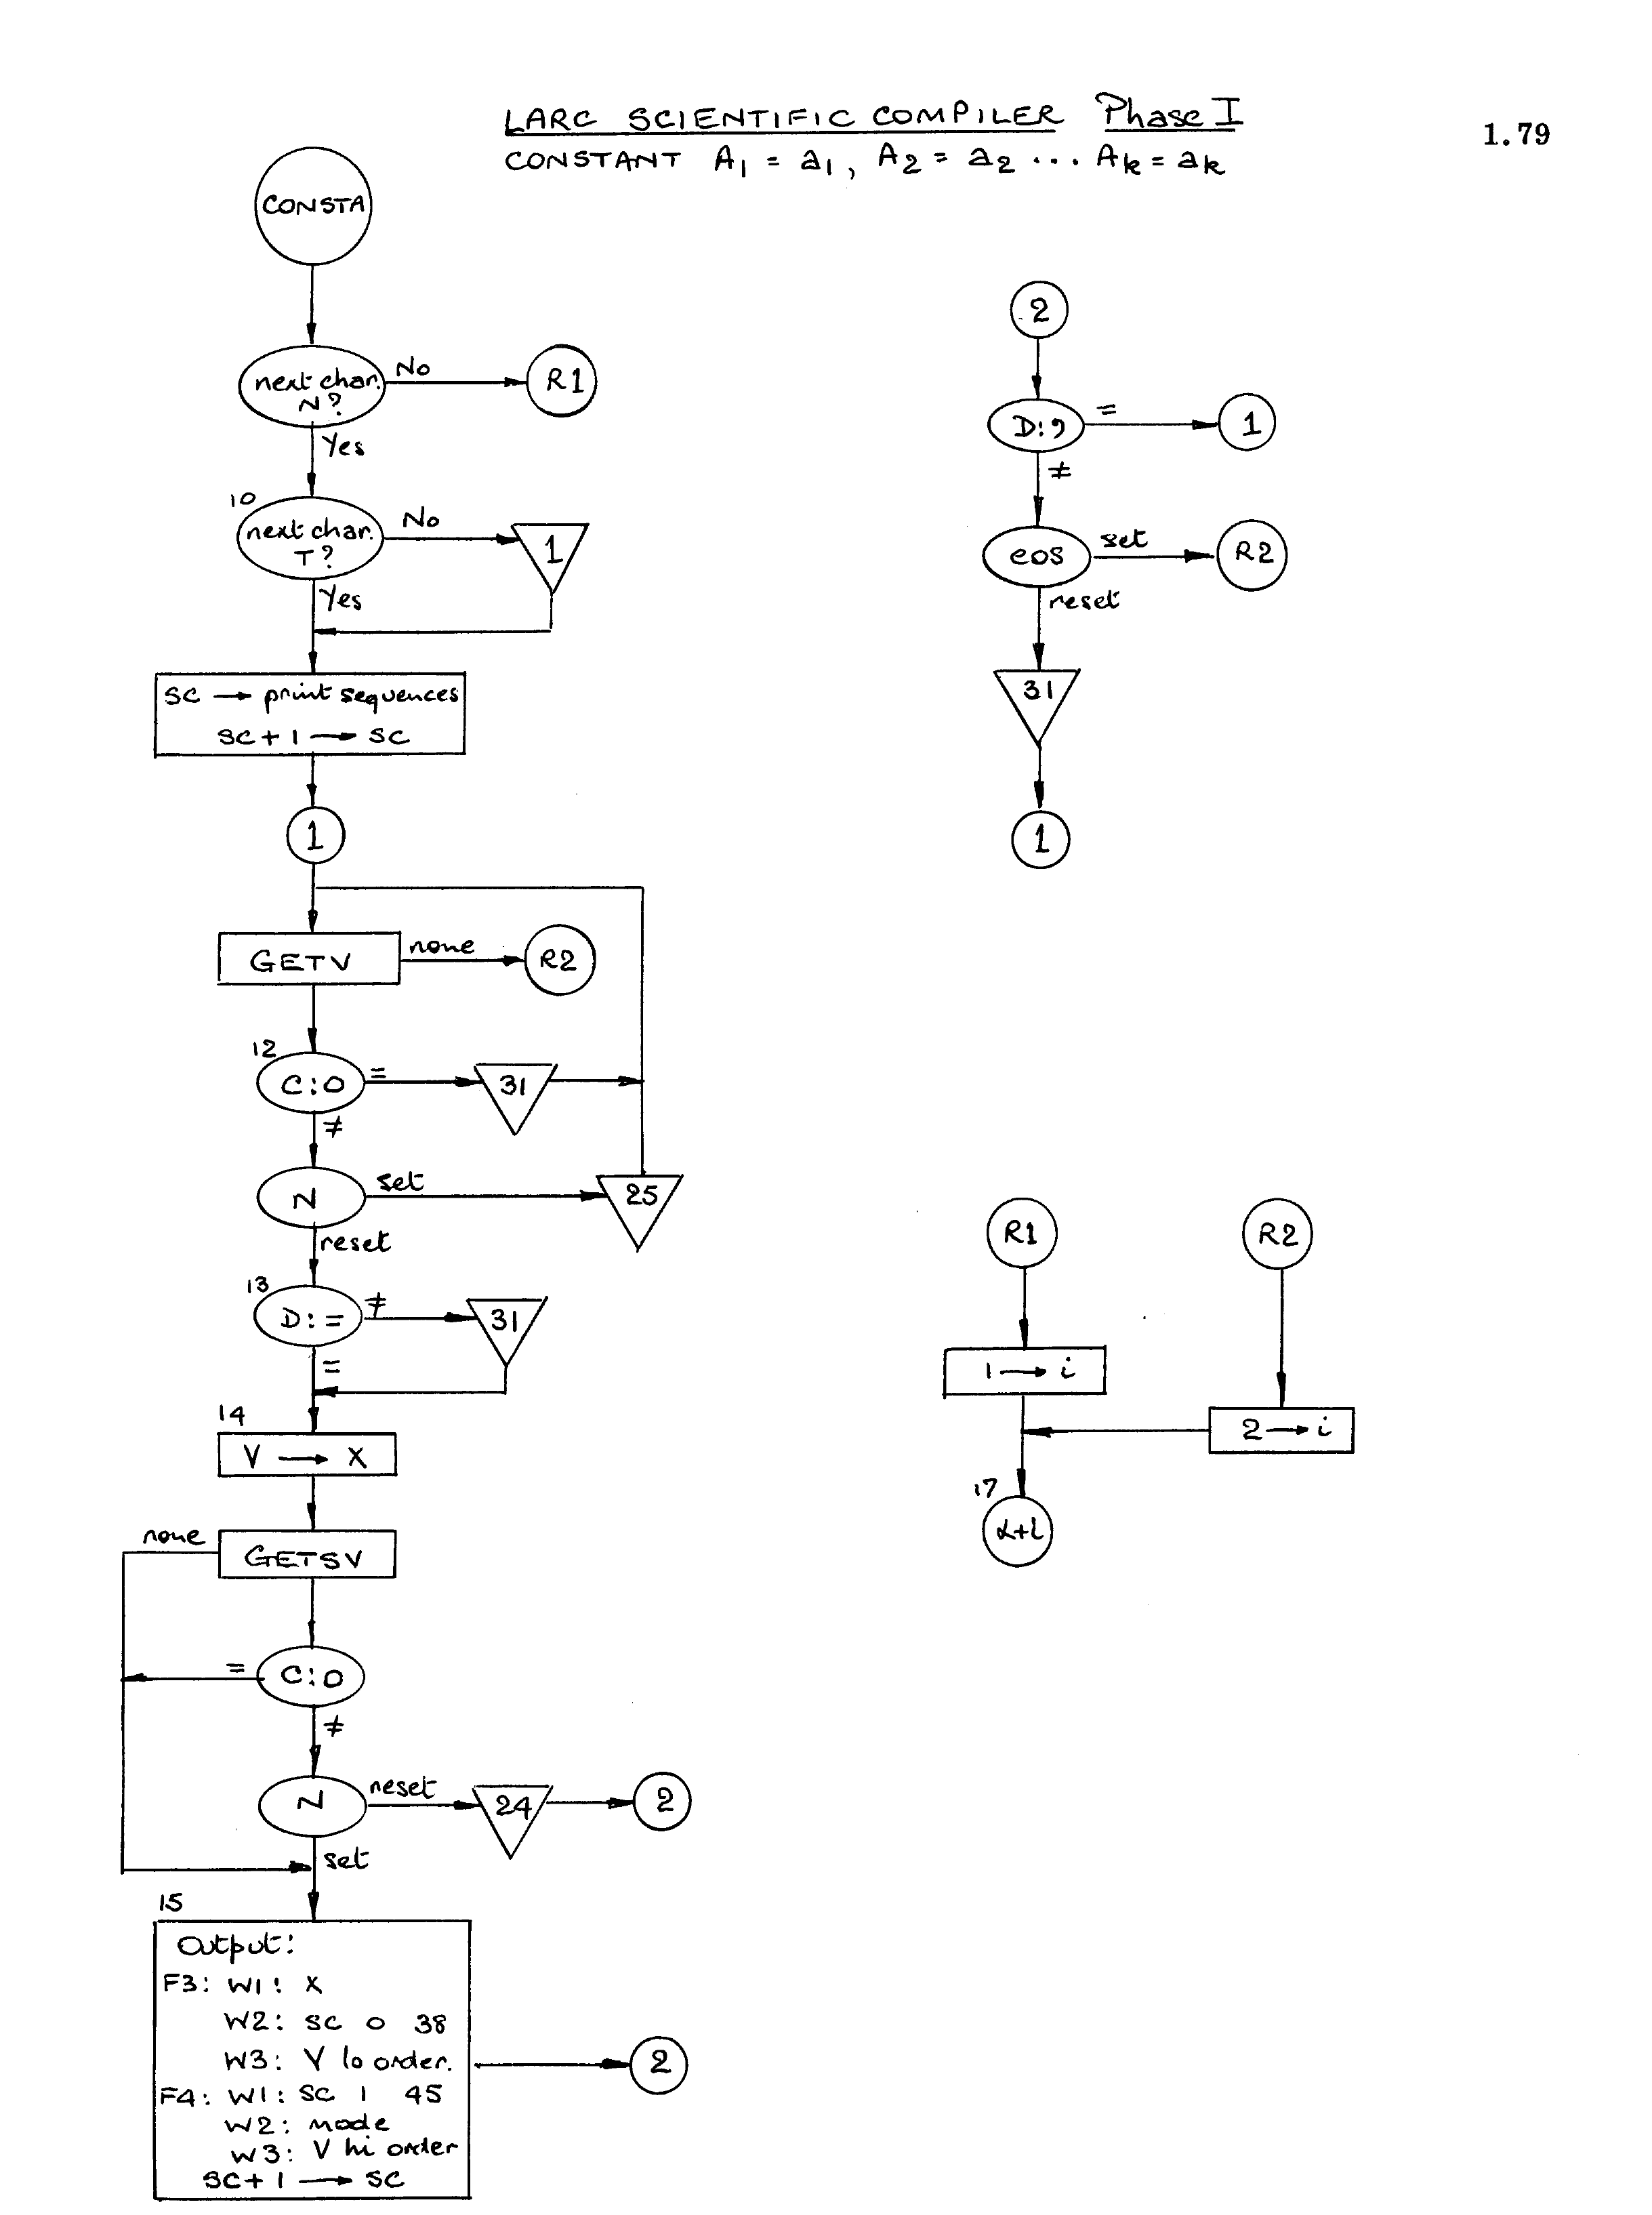 LARC SCIENTIFIC COMPILER Phase I
1.79
CONSTANT A1 = a1, A2 = a2 ... Ak = ak
CONSTA
next char. N?
No
R1
Yes
10
next char. T?
No
1
Yes
SC → print sequences
SC + 1 → SC
1
GETV
none
R2
12
C:0
=
31
≠
N
set
25
reset
13
D:=
≠
31
=
14
V → X
none
GETSV
=
C:0
≠
N
reset
24
2
set
15
Output:
F3: W1: X
W2: SC 0 38
W3: V lo order.
F4: W1: SC 1 45
W2: mode
W3: V hi order
SC + 1 → SC
2
2
D:,
=
1
≠
eos
set
R2
reset
31
1
R1
R2
1 → i
2 → i
17
α+i